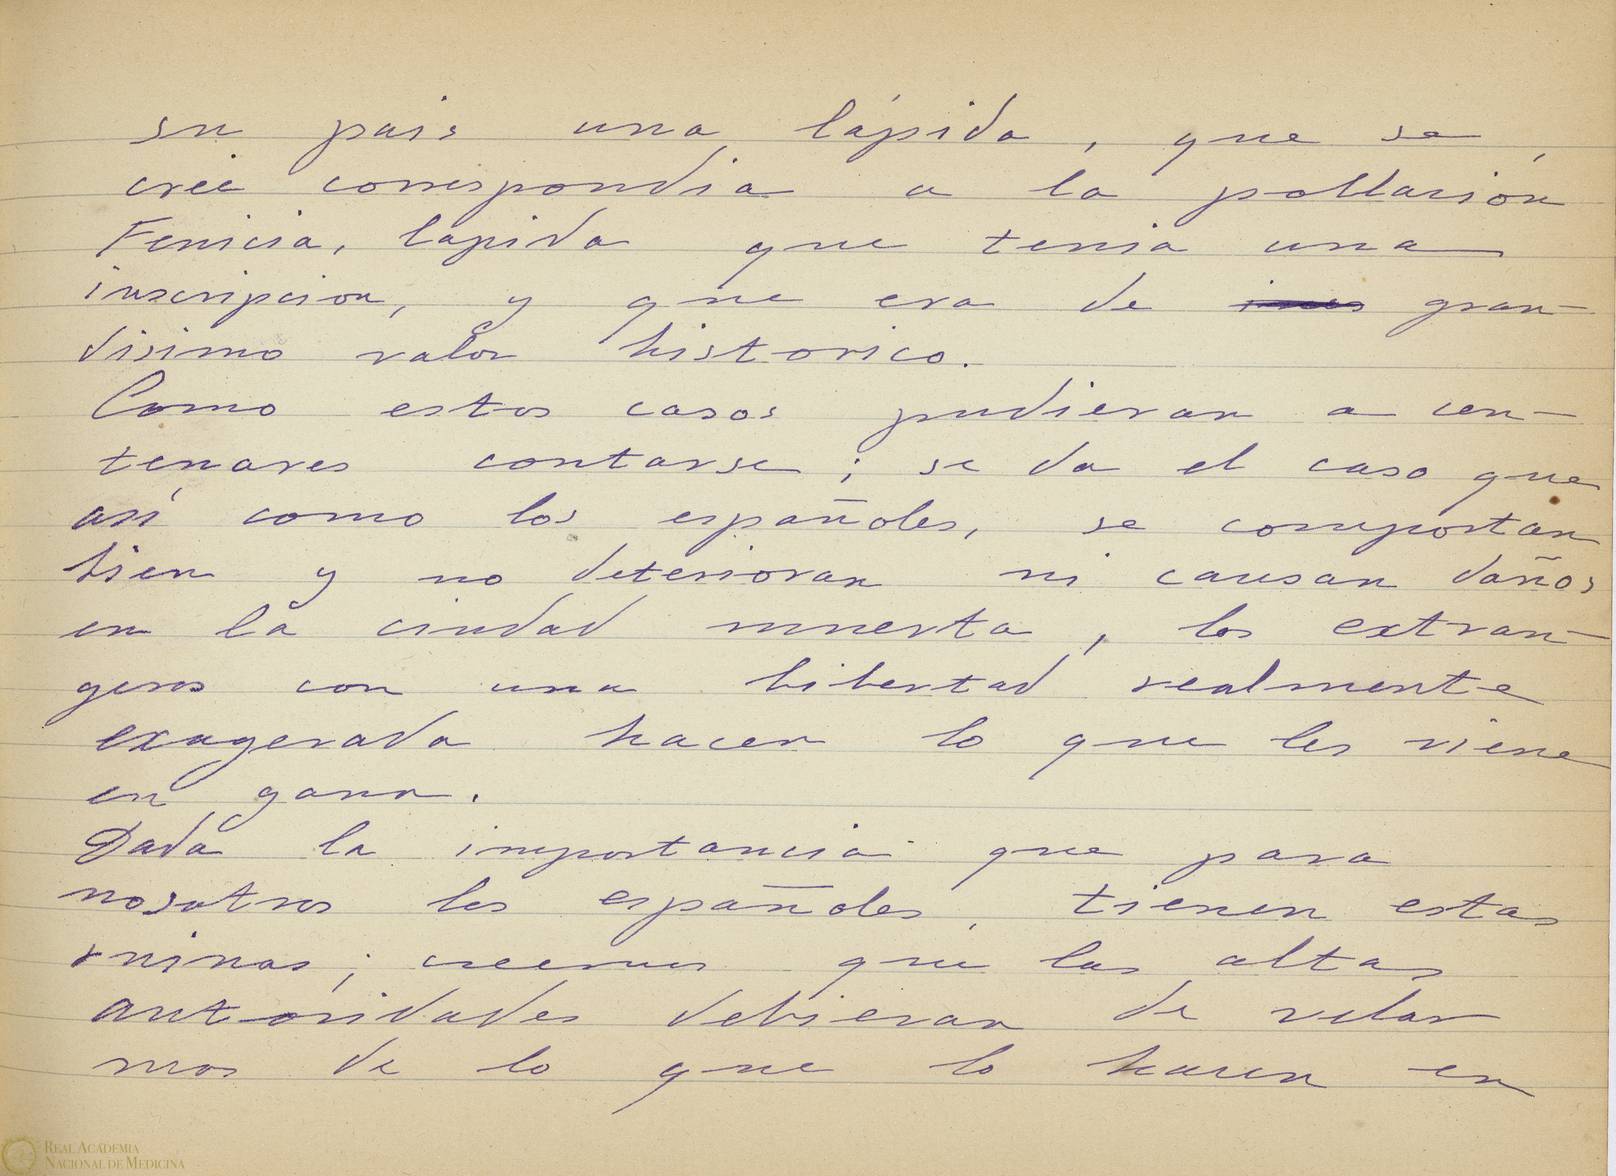 su pais una lápida, que se
creé correspondia a la población
Fenicia, lapida que tenia una
inscripcion, y que era de gran-
disimo valor historico.
Como estos casos pudieran a cen-
tenares contarse; se da el caso que
así como los españoles, se comportan
bien y no deterioran ni causan daños
en la ciudad muerta, los extran-
geros con una libertad realmente
exagerada hacen lo que les viene
en gana.
Dada la importancia que para
nosotros los españoles, tienen estas
ruinas; creemos que las altas
autoridades debieran de velar
mas de lo que lo hacen en
REAL ACADEMIA
NACIONAL DE MEDICINA